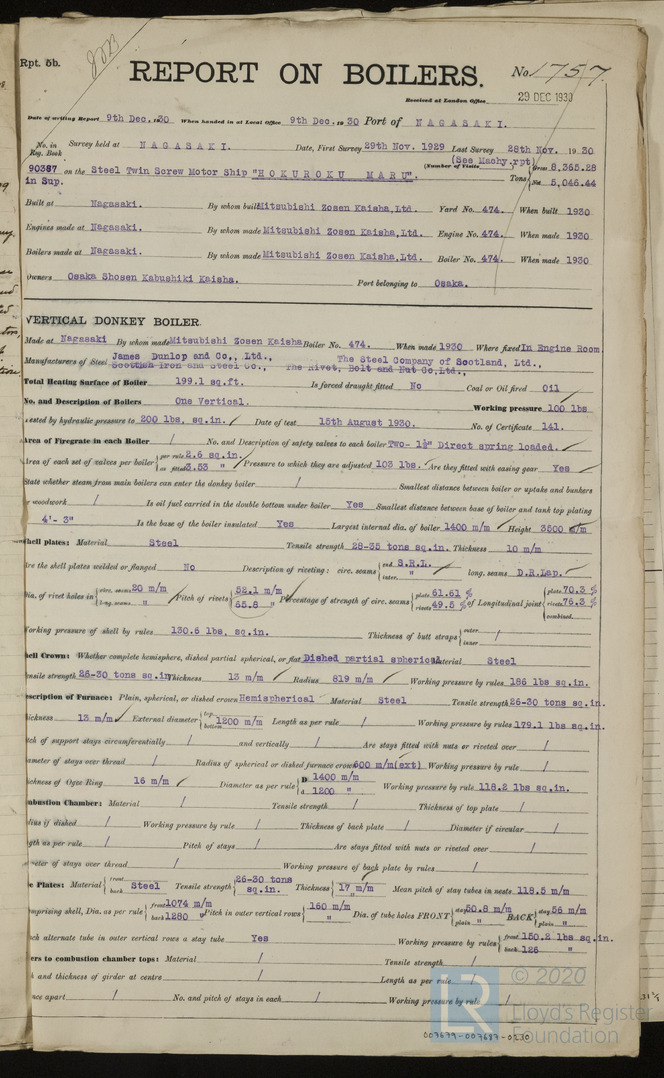 Rpt. 5b.
REPORT ON BOILERS.
No. 1757.
Received at London Office 29 DEC 1930
Date of writing Report 9th Dec. 1930 When handed in at Local Office 9th Dec. 1930 Port of NAGASAKI.
No. in Reg. Book Survey held at NAGASAKI. Date, First Survey 29th Nov. 1929 Last Survey 28th Nov. 1930
(Number of Visits (See Machy.rpt)
90387 in Sup. on the Steel Twin Screw Motor Ship "HOKUROKU MARU". Tons { Gross 8,365.28 Net 5,046.44
Built at Nagasaki. By whom built Mitsubishi Zosen Kaisha,Ltd. Yard No. 474. When built 1930
Engines made at Nagasaki. By whom made Mitsubishi Zosen Kaisha,Ltd. Engine No. 474. When made 1930
Boilers made at Nagasaki. By whom made Mitsubishi Zosen Kaisha,Ltd. Boiler No. 474. When made 1930
Owners Osaka Shosen Kabushiki Kaisha. Port belonging to Osaka.
VERTICAL DONKEY BOILER.
Made at Nagasaki By whom made Mitsubishi Zosen Kaisha Boiler No. 474. When made 1930 Where fixed In Engine Room
Manufacturers of Steel James Dunlop and Co., Ltd., The Steel Company of Scotland, Ltd.,
Scottish Iron and Steel Co., The Rivet, Bolt and Nut Co,Ltd.,
Total Heating Surface of Boiler 199.1 sq.ft. Is forced draught fitted No Coal or Oil fired Oil
No. and Description of Boilers One Vertical. Working pressure 100 lbs
ested by hydraulic pressure to 200 lbs. sq.in. Date of test 15th August 1930. No. of Certificate 141.
Area of Firegrate in each Boiler / No. and Description of safety valves to each boiler Two- 1½" Direct spring loaded.
Area of each set of valves per boiler { per rule 2.6 sq.in. as fitted 3.53 " Pressure to which they are adjusted 103 lbs. Are they fitted with easing gear Yes
State whether steam from main boilers can enter the donkey boiler / Smallest distance between boiler or uptake and bunkers
or woodwork / Is oil fuel carried in the double bottom under boiler Yes Smallest distance between base of boiler and tank top plating
4'- 3" Is the base of the boiler insulated Yes Largest internal dia. of boiler 1400 m/m Height 3500 m/m
Shell plates: Material Steel Tensile strength 28-35 tons sq.in. Thickness 10 m/m
Are the shell plates welded or flanged No Description of riveting: circ. seams { end S.R.L. inter. " long. seams D.R.Lap.
Dia. of rivet holes in { circ. seams 20 m/m long. seams " Pitch of rivets { 52.1 m/m 65.8 " Percentage of strength of circ. seams { plate 61.61 % rivets 49.5 % of Longitudinal joint { plate 70.3 % rivets 76.3 % combined.
Working pressure of shell by rules 130.6 lbs. sq.in. Thickness of butt straps { outer / inner
Shell Crown: Whether complete hemisphere, dished partial spherical, or flat Dished partial spherical Material Steel
ensile strength 26-30 tons sq.in Thickness 13 m/m Radius 819 m/m Working pressure by rules 186 lbs sq.in.
escription of Furnace: Plain, spherical, or dished crown Hemispherical Material Steel Tensile strength 26-30 tons sq.in.
ickness 13 m/m External diameter { top bottom 1200 m/m Length as per rule / Working pressure by rules 179.1 lbs sq.in.
tch of support stays circumferentially / and vertically / Are stays fitted with nuts or riveted over /
ameter of stays over thread / Radius of spherical or dished furnace crown 600 m/m(ext) Working pressure by rule /
ickness of Ogee Ring 16 m/m Diameter as per rule { D 1400 m/m d 1200 " Working pressure by rule 118.2 lbs sq.in.
mbustion Chamber: Material / Tensile strength / Thickness of top plate /
dius if dished / Working pressure by rule / Thickness of back plate / Diameter if circular /
gth as per rule / Pitch of stays / Are stays fitted with nuts or riveted over /
meter of stays over thread / Working pressure of back plate by rules /
e Plates: Material { front back Steel Tensile strength { 26-30 tons sq.in. Thickness { 17 m/m " Mean pitch of stay tubes in nests 118.5 m/m
mprising shell, Dia. as per rule { front 1074 m/m back 1280 " Pitch in outer vertical rows { 160 m/m " Dia. of tube holes FRONT { stay 50.8 m/m plain " BACK { stay 56 m/m plain "
ach alternate tube in outer vertical rows a stay tube Yes Working pressure by rules { front 150.2 lbs sq.in. back 126 "
ers to combustion chamber tops: Material / Tensile strength /
h and thickness of girder at centre / Length as per rule /
nce apart / No. and pitch of stays in each / Working pressure by rule /
© 2020
Lloyd's Register
Foundation
007679-007687-0230